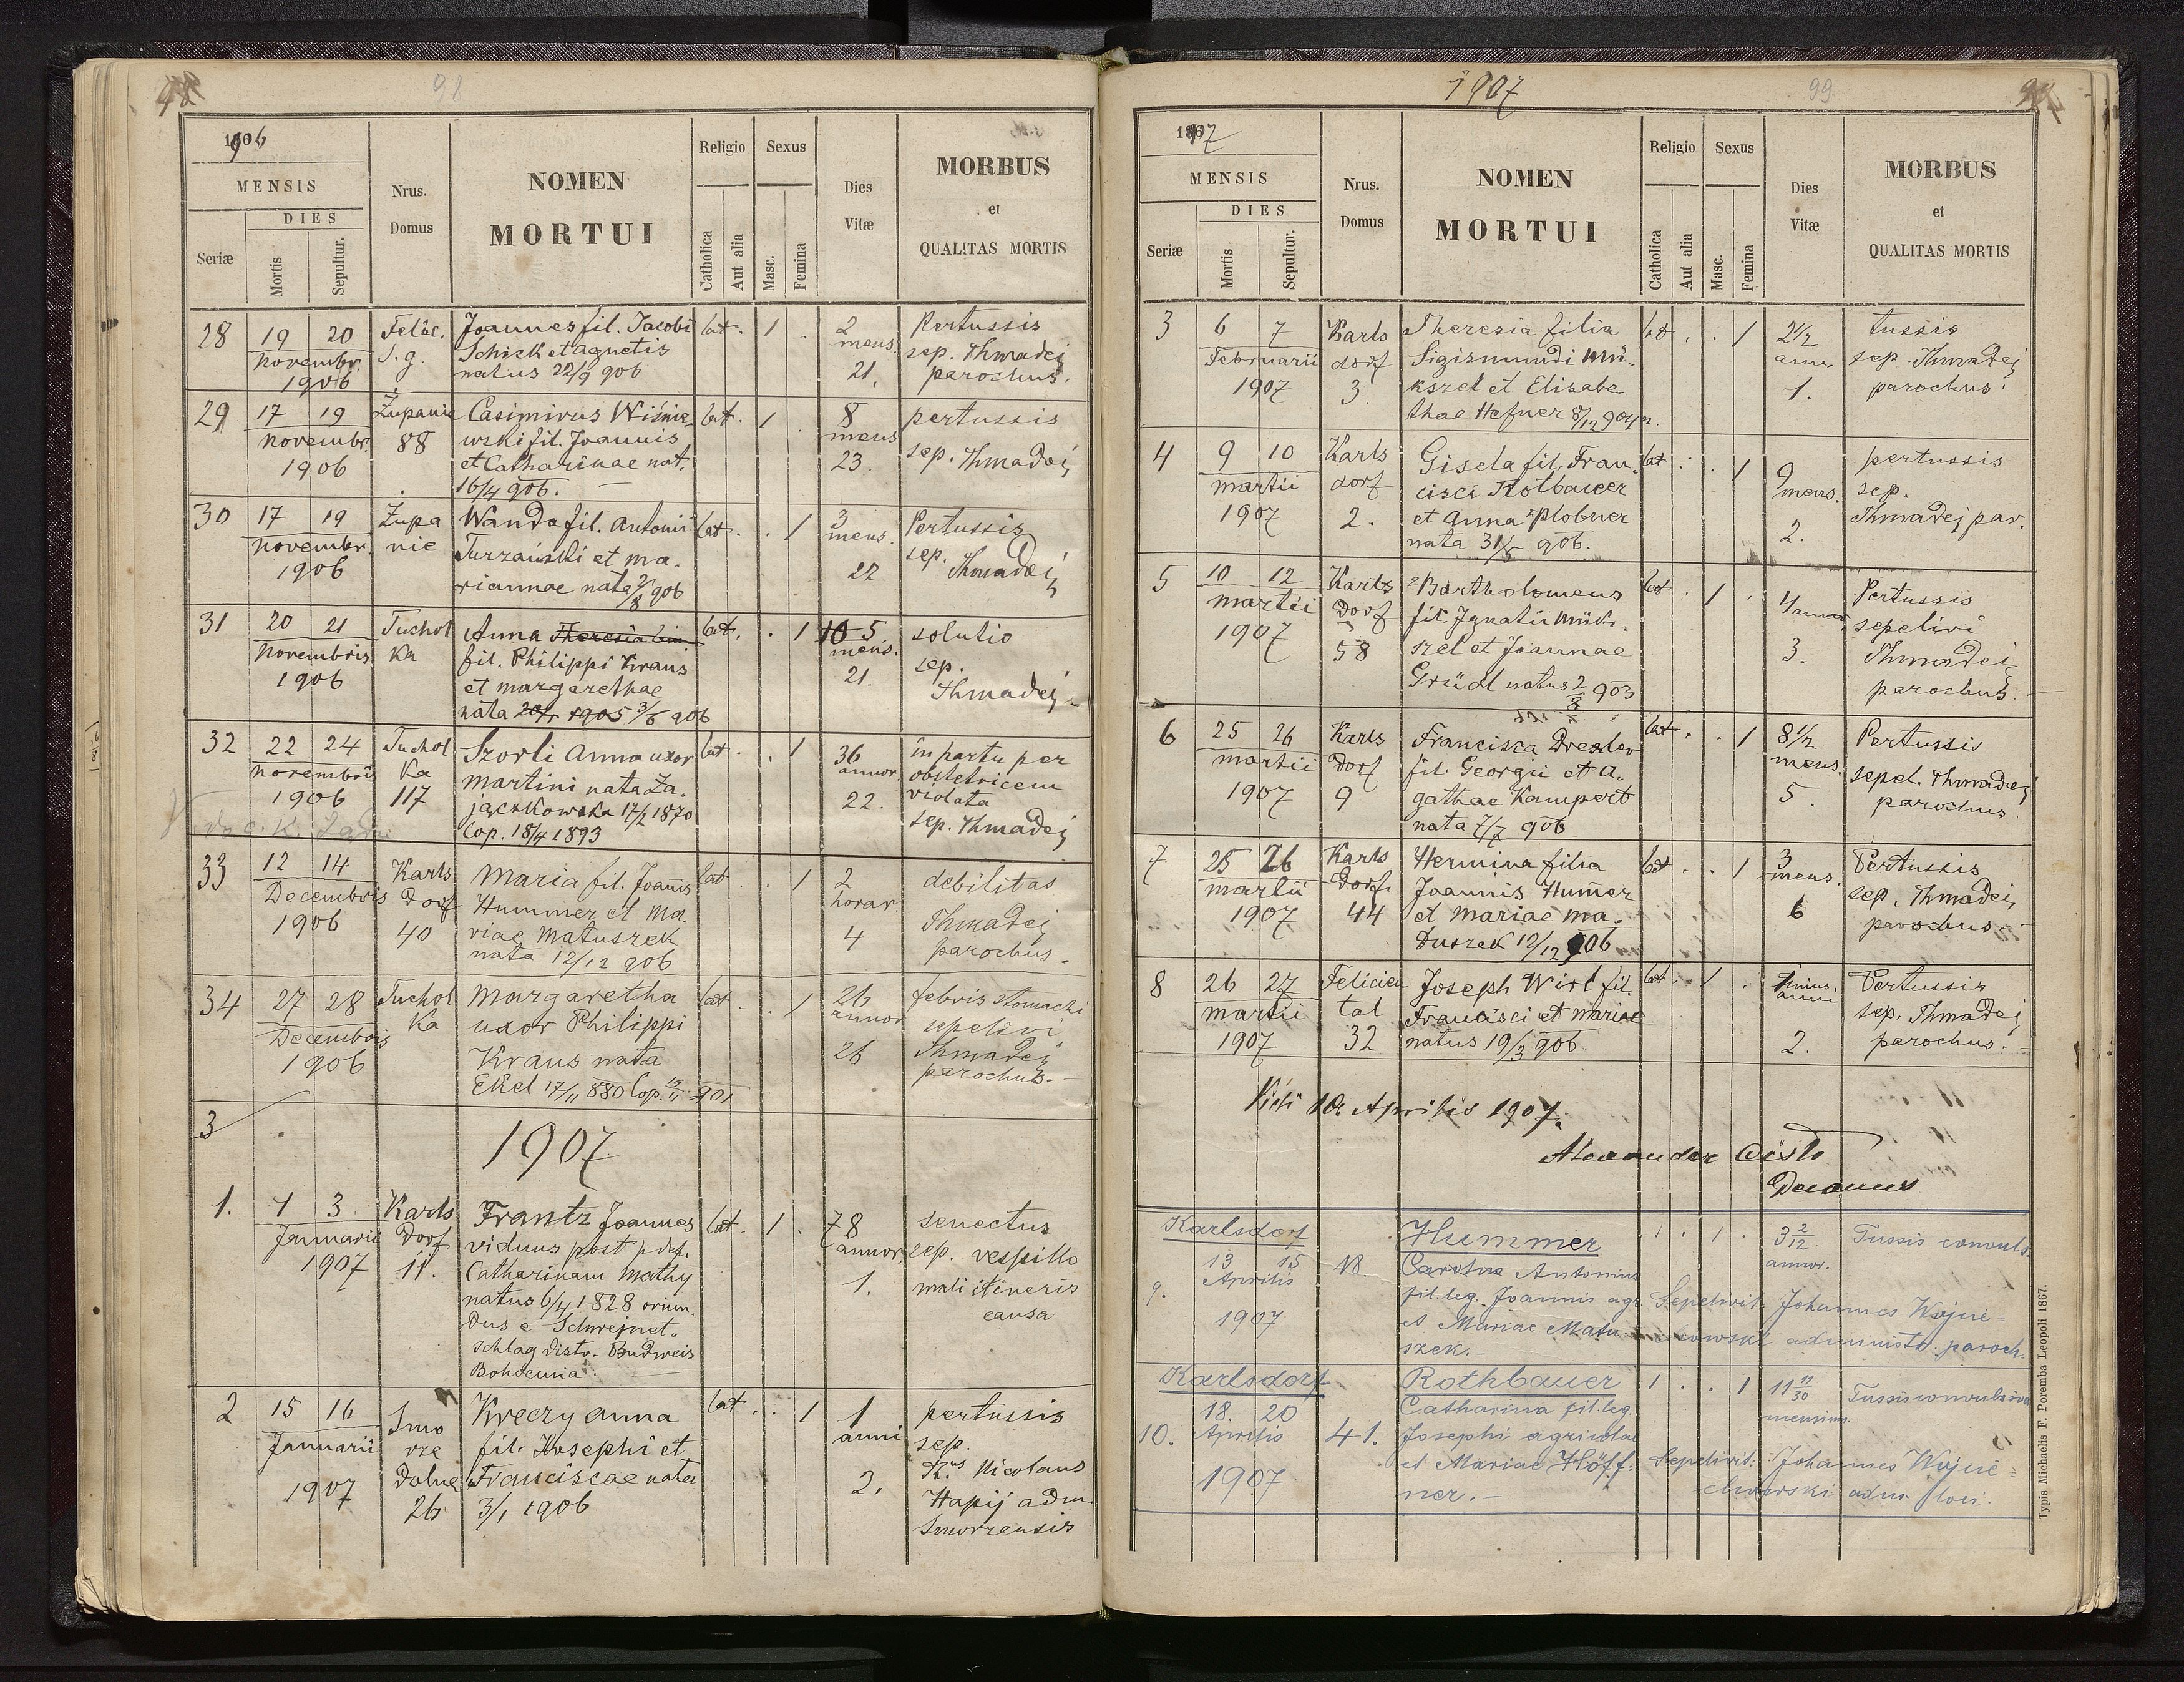 98
1906
MENSIS
DIES
Seriæ
Mortis
Sepultur.
Nrus.
Domus
NOMEN
MORTUI
Religio
Catholica
Aut alia
Sexus
Masc.
Femina
Dies
Vitæ
MORBUS
et
QUALITAS MORTIS
28 19 20 Felic. Joannes fil. Jacobi lat. 1 . 2 Pertussis
Novembr. S. g. Schick et Agnetis mens. sep. Thmadej
1906 natus 22/9 906 21. parochus.
29 17 19 Żupanie Casimirus Wiśnie- lat. 1 . 8 pertussis
Novembr. 88 wski fil. Joannis mens
1906 et Catharinae nat. 23. sep. Thmadej
16/4 906.
30 17 19 Żupa Wanda fil. Antonii lat. . 1 3 Pertussis
Novembr. nie Turzański et Ma. mens. sep.
1906 riannae nata 906 22 Thmadej
31 20 21 Tuchol Anna Theresia lat. . 1 10 5. solutio
Novembris ka fil. Philippi Kraus mens. sep.
1906 et Margarethae 21. Thmadej
nata 1905 3/6 906
32 22 24 Tuchol Szorli Anna uxor lat . 1 36 in partu per
Novembris ka Martini nata Za. annor. obstetricem
1906 117 jączkowska 1870 22. violata
Cop. 18/4 1893 sep. Thmadej
33 12 14 Karls Maria fil. Joannis lat . 1 2 debilitas
Decembris Dorf Hummer et Ma. horar.
1906 40 riae Matuszek 4 Thmadej
nata 12/12 906 parochus.
34 27 28 Tuchol Margaretha lat . 1 26 febris stomachi
Decembris ka uxor Philippi annor sepelivi
1906 Kraus nata 26 Thmadej
Ekel 17/11 880 Cop. 901 parochus.
3
1907
1. 1 3 Karls Frantz Joannes lat. 1 . 78 senectus
Januarii Dorf viduus post p. def. annor. sep. vespillo
1907 11. Catharinam Mathy 1. mali itineris
natus 6/4 1828 oriun. causa
dus e Schwejnet-
schlag distr. Budweis
Bohoemia.
2 15 16 Smo Kreczy Anna lat . 1 1 pertussis
Januarii rze fil. Josephi et anni sep.
1907 Dolne Franciscae nata 2. R.us Nicolaus
26 3/1 1906 Hapij adm.
Smorzensis
1907
99
1907
MENSIS
DIES
Seriæ
Mortis
Sepultur.
Nrus.
Domus
NOMEN
MORTUI
Religio
Catholica
Aut alia
Sexus
Masc.
Femina
Dies
Vitæ
MORBUS
et
QUALITAS MORTIS
3 6 7 Karls Theresia filia lat . . 1 2 1/2 tussis
Februarii dorf Sigismundi Mü- ann. sep. Thmadej
1907 3. kszel et Elisabe 1. parochus.
thae Hefner 8/12 904
4 9 10 Karls Gisela fil. Fran. lat . . 1 9 pertussis
Martii dorf cisci Rotbauer mens. sep.
1907 2. et Anna Plobner 2. Thmadej par.
nata 31/5 906.
5 10 12 Karls Bartholomeus lat . 1 . Pertussis
Martii Dorf fil. Ignatii Mück- sepelivi
1907 58 szel et Joannae 3. Thmadej
Gründl natus 2/8 903 parochus.
6 25 26 Karls Francisca Drexler lat . . 1 8 1/2 Pertussis
Martii Dorf fil. Georgii et A. mens. sepel. Thmadej
1907 9 gathae Kampert 5. parochus.
nata 7/7 906
7 25 26 Karls Hermina filia lat . . 1 3 Pertussis
Martii Dorf Joannis Humer mens. sep. Thmadej
1907 44 et Mariae Ma. 6 parochus.
Duszek 12/12 906
8 26 27 Felicien Joseph Wirl fil. lat . 1 . unius Pertussis
Martii tal Francisci et Mariae anni sep. Thmadej
1907 32 natus 19/3 906 2. parochus.
Vidi 10. Aprilis 1907.
Alexander Cisło
Decanus
Karlsdorf Hummer 1 . 1 . 3 2/12 Tussis convuls.
13 15 18. Carolus Antonius annor.
9. Aprilis fil. leg. Joannis agr. Sepelivit Johannes Wojcie-
1907 et Mariae Matu- chowski administr. paroch.
szek.-
Karlsdorf Rothbauer 1 . . 1 11 11/30 Tussis convulsiva
18. 20 Catharina fil. leg. mensium.
10. Aprilis 41. Josephi agricolae
1907 et Mariae Höff- Sepelivit: Johannes Wojcie-
ner.- chowski adm. loci.
Typis Michaelis F. Poremba Leopoli 1867.